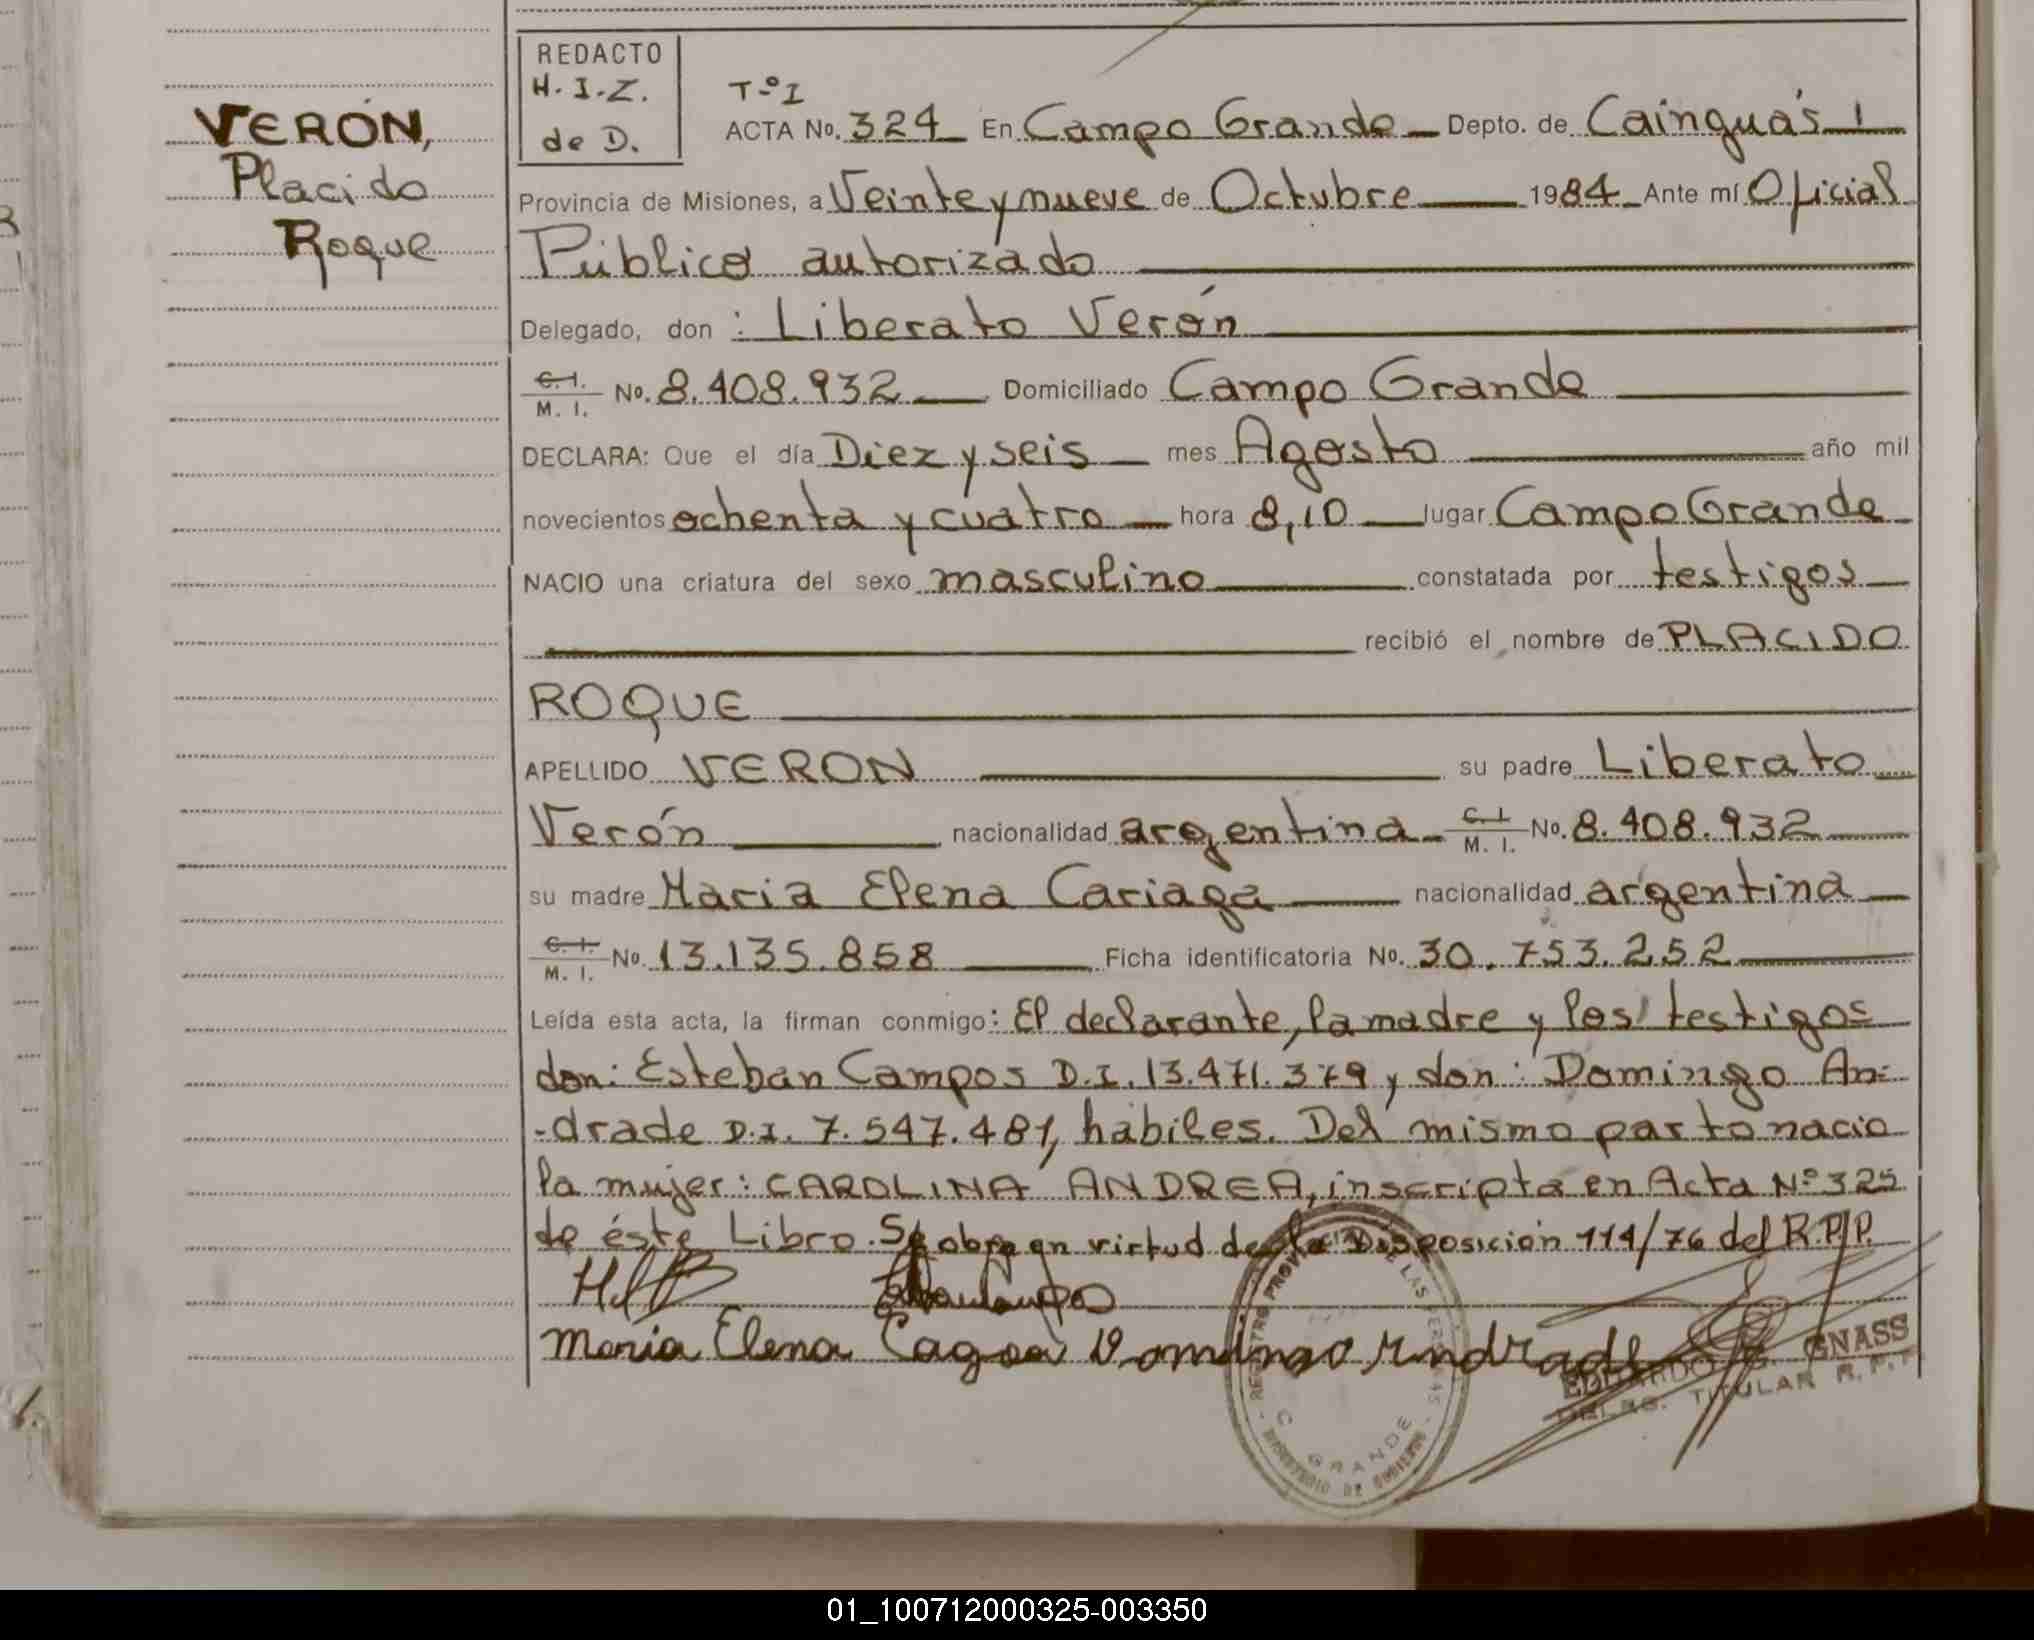 REDACTO
H. I. Z.
de D.
Tº I
VERÓN,
Placido
Roque
ACTA No. 324 En Campo Grande Depto. de Cainguás
Provincia de Misiones, a Veinte y nueve de Octubre 1984 Ante mí Oficial
Público autorizado
Delegado, don : Liberato Verón
C. I. M. I. No. 8.408.932 Domiciliado Campo Grande
DECLARA: Que el día Diez y seis mes Agosto año mil
novecientos ochenta y cuatro hora 8,10 lugar Campo Grande
NACIO una criatura del sexo masculino constatada por testigos
recibió el nombre de PLACIDO
ROQUE
APELLIDO VERON su padre Liberato
Verón nacionalidad argentina C. I. M. I. No. 8.408.932
su madre Maria Elena Cariaga nacionalidad argentina
C. I. M. I. No. 13.135.858 Ficha identificatoria No. 30.753.252
Leída esta acta, la firman conmigo: El declarante, la madre y los testigos
don: Esteban Campos D.I. 13.471.379 y don: Domingo An-
-drade D.I. 7.547.481, hábiles. Del mismo parto nacio
la mujer: CAROLINA ANDREA, inscripta en Acta Nº 325
de éste Libro. Se obra en virtud de la Disposición 114/76 del R.P.P.
Maria Elena Domingo Andrade
REGISTRO PROVINCIAL DE LAS PERSONAS
C GRANDE
MINISTERIO DE GOBIERNO
GNASS
TITULAR R. P. P.
01_100712000325-003350